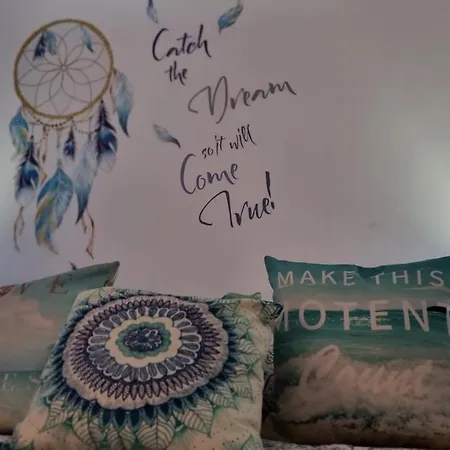 Catch
the
Dream
so it will
Come
True!
MAKE THIS
MOTENT
Count